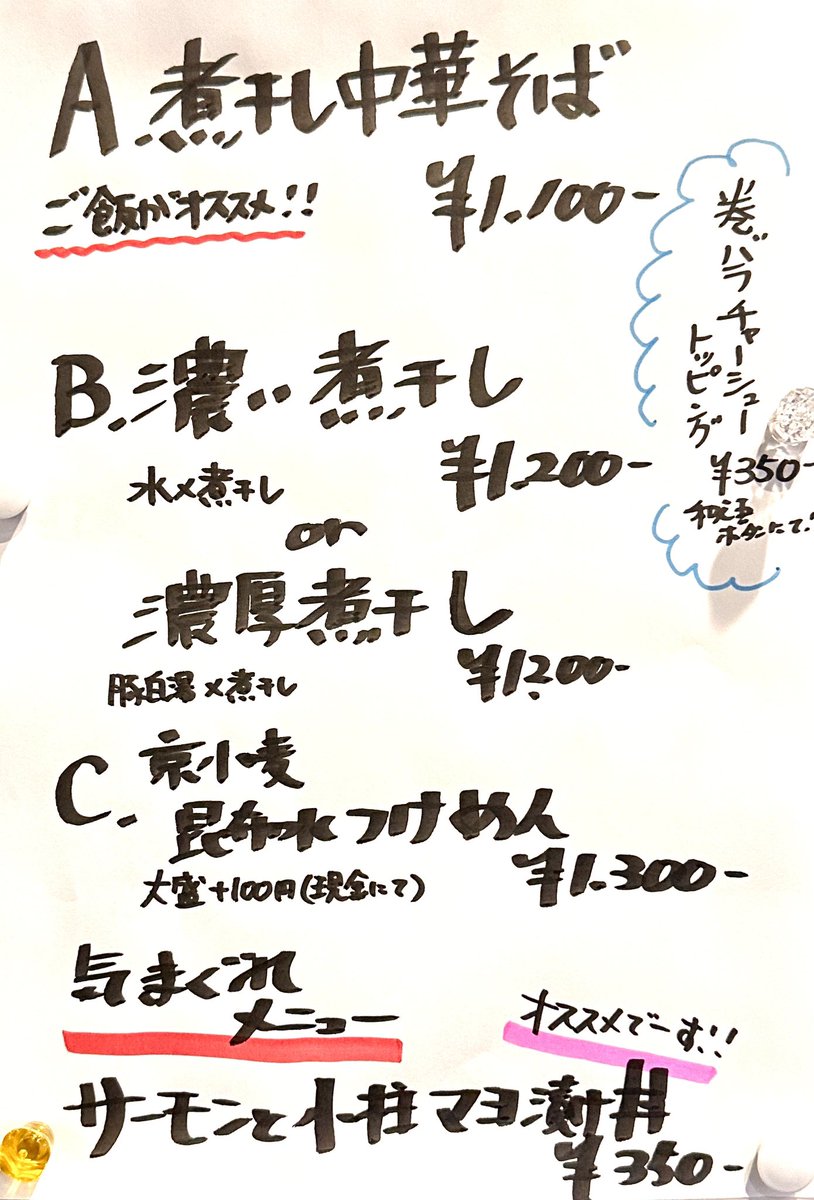 A 煮干し中華そば
ご飯がオススメ!!
¥1.100-
巻バラチャーシュー
トッピング
¥350-
ボタンにて!
B. 濃い煮干し
¥1.200-
水×煮干し
or
濃厚煮干し
¥1.200-
豚白湯×煮干し
C. 京小麦
昆布水つけめん
¥1.300-
大盛+100円(現金にて)
気まぐれ
メニュー
オススメでーす!!
サーモンと小柱マヨ漬け丼
¥350-